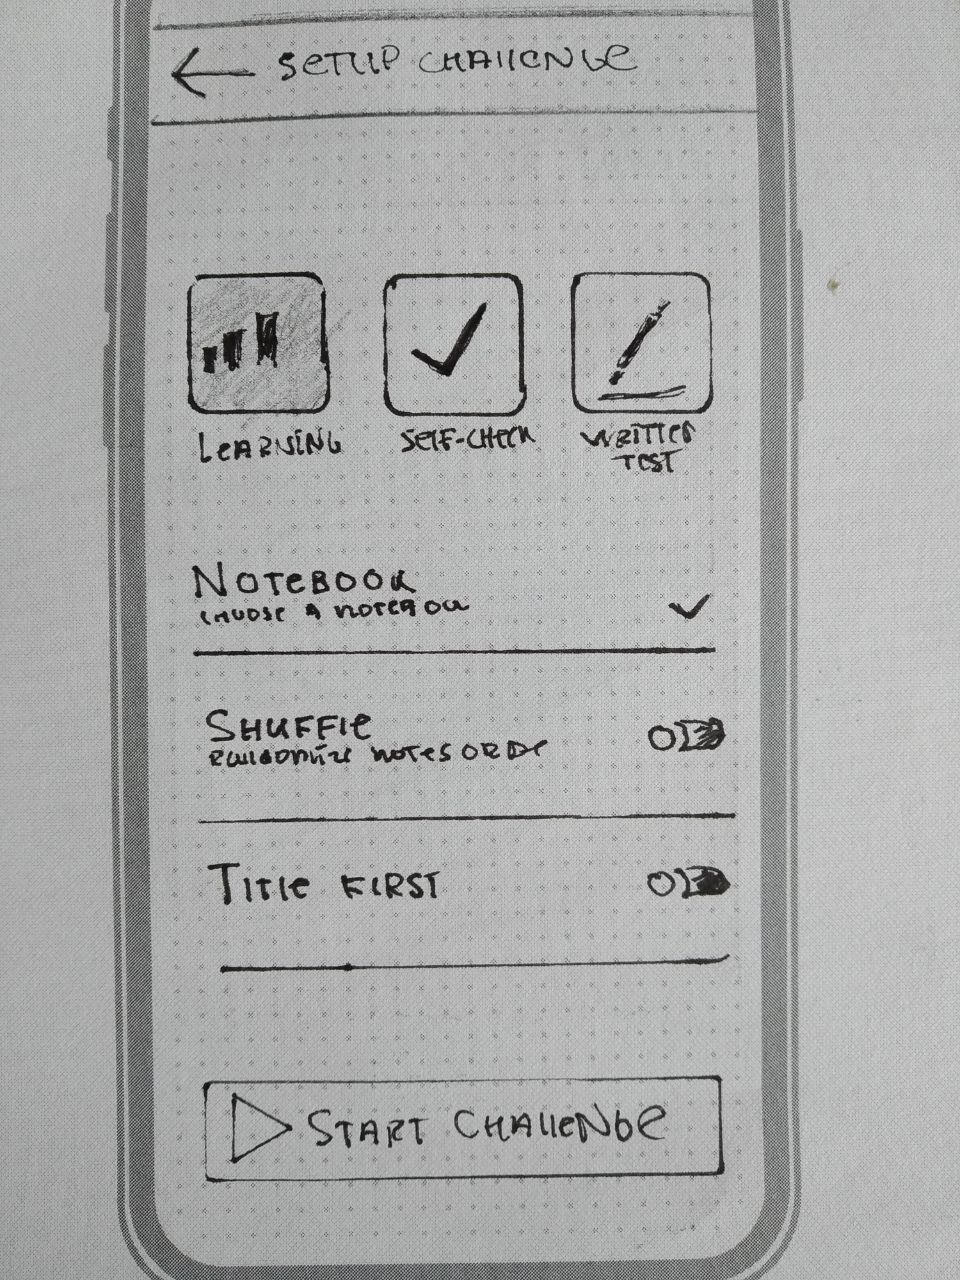 SETUP CHALLENGE
LEARNING
SELF-CHECK
WRITTEN
TEST
NOTEBOOK
CHOOSE A NOTEBOOK
SHUFFLE
RANDOMIZE NOTES ORDE
TITLE FIRST
START CHALLENGE